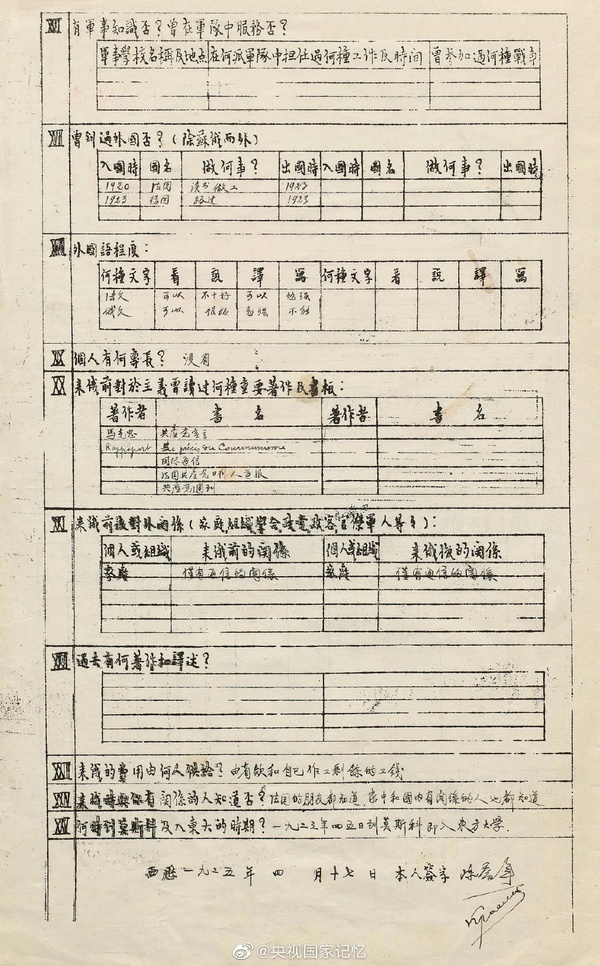 XVI 有軍事知識否？曾在軍隊中服務否？
軍事學校名稱及地点 在何派軍隊中担任過何種工作及時間 曾参加過何種戰事
XVII 曾到過外国否？(除蘇俄而外)
入國時 國名 做何事？ 出國時 入國時 國名 做何事？ 出國時
1920 法国 讀书做工 1923
1923 德国 路过 1923
XVIII 外國語程度：
何種文字 看 説 譯 寫 何種文字 看 説 譯 寫
法文 可以 不十好 可以 勉强
俄文 可以 勉强 不能
XIX 個人有何專長？ 没有
XX 来俄前對於主義曾讀过何種重要著作及書板：
著作者 書名 著作者 書名
馬克思 共産党宣言
Rappoport précis du Communisme
国际通信
共産党週刊
XXI 来俄前後對外関係(家庭組織學会政党政客官僚軍人等々)：
個人或組織 来俄前的関係 個人或組織 来俄後的関係
家庭 僅有通信的関係 家庭 僅有通信的関係
XXII 過去有何著作和譯述？
XXIII 来俄的費用由何人供給？ 由有欵和自己作工剩餘的工錢
XXIV 来俄時與你有関係的人知道否？ 法国的朋友都知道 家中和國内有関係的人也都知道
XXV 何時到莫斯科及入東大的時期？ 一九二三年四五日到莫斯科即入東方大學.
西歷一九二五年 四 月十七日 本人簽字 陳
@央视国家记忆